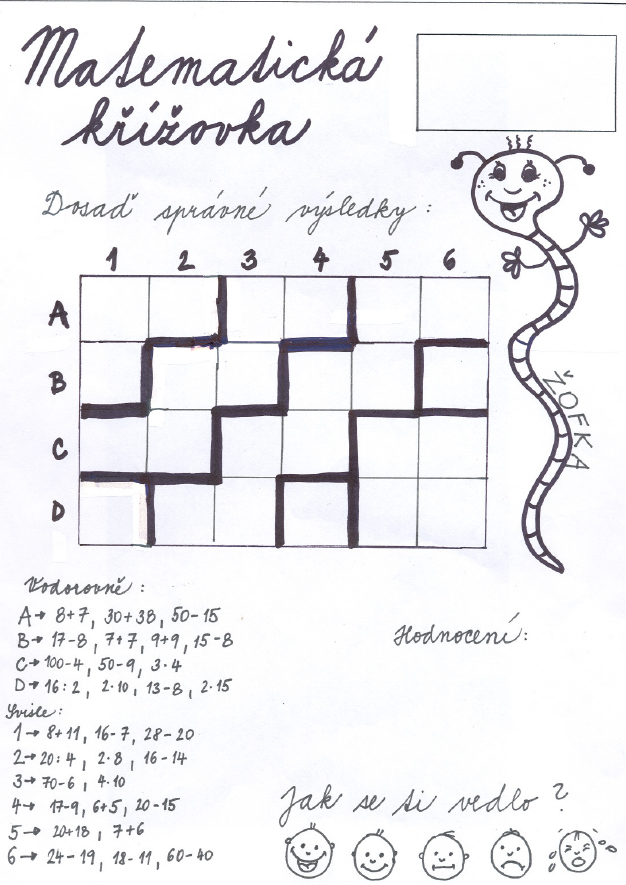 Matematická
křížovka
Dosaď správné výsledky:
1 2 3 4 5 6
A
B
C
D
ŽOFKA
Vodorovně:
A→ 8+7, 30+38, 50-15
B→ 17-8, 7+7, 9+9, 15-8
C→ 100-4, 50-9, 3·4
D→ 16:2, 2·10, 13-8, 2·15
Svisle:
1→ 8+11, 16-7, 28-20
2→ 20:4, 2·8, 16-14
3→ 70-6, 4·10
4→ 17-9, 6+5, 20-15
5→ 20+18, 7+6
6→ 24-19, 18-11, 60-40
Hodnocení:
Jak se ti vedlo?